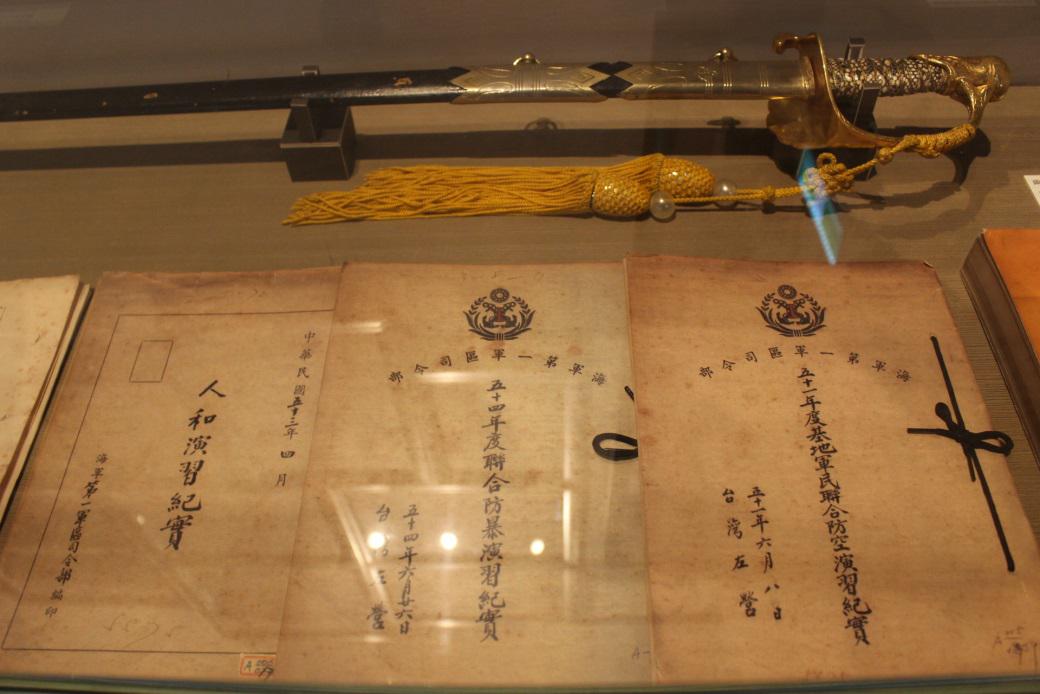 中華民國五十三年四月
人和演習紀實
海軍第一軍區司令部編印
A
海軍第一軍區司令部
五十四年度聯合防暴演習紀實
五十四年六月廿六日
台灣左營
海軍第一軍區司令部
五十一年度基地軍民聯合防空演習紀實
五十一年六月八日
台灣左營